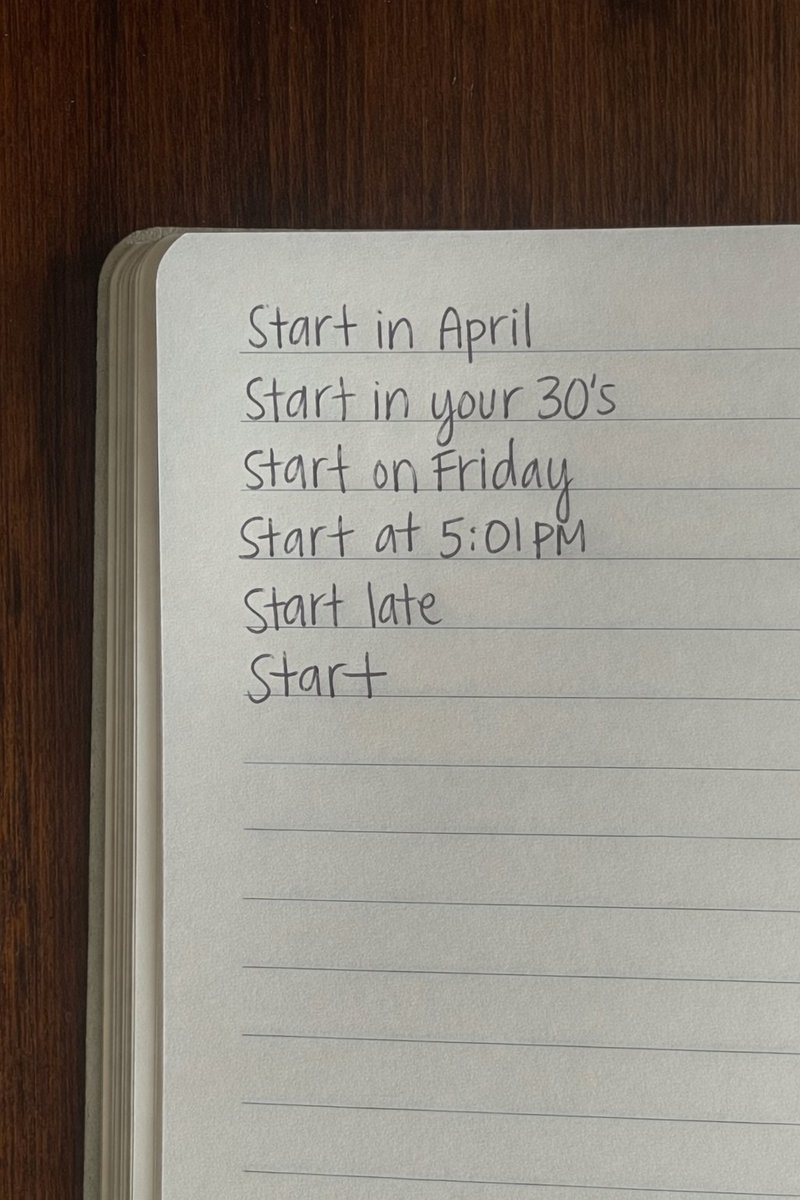 Start in April
Start in your 30's
Start on Friday
Start at 5:01PM
Start late
Start